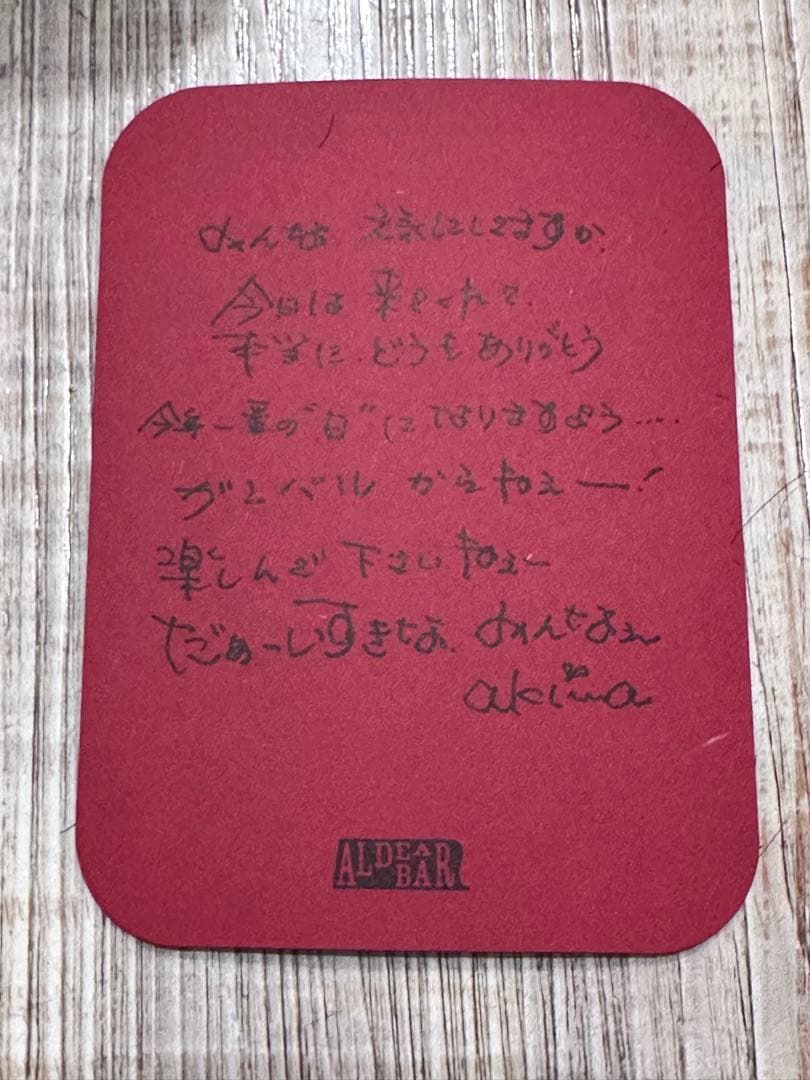 みんな 元気にしてますか
今日は 来てくれて
本当に どうも ありがとう
今年一番の"日"に なりますよう....
ガンバル からねェー!
楽しんで 下さいねェー
だぁーいすきな みんなへ
akina
ALDEABAR